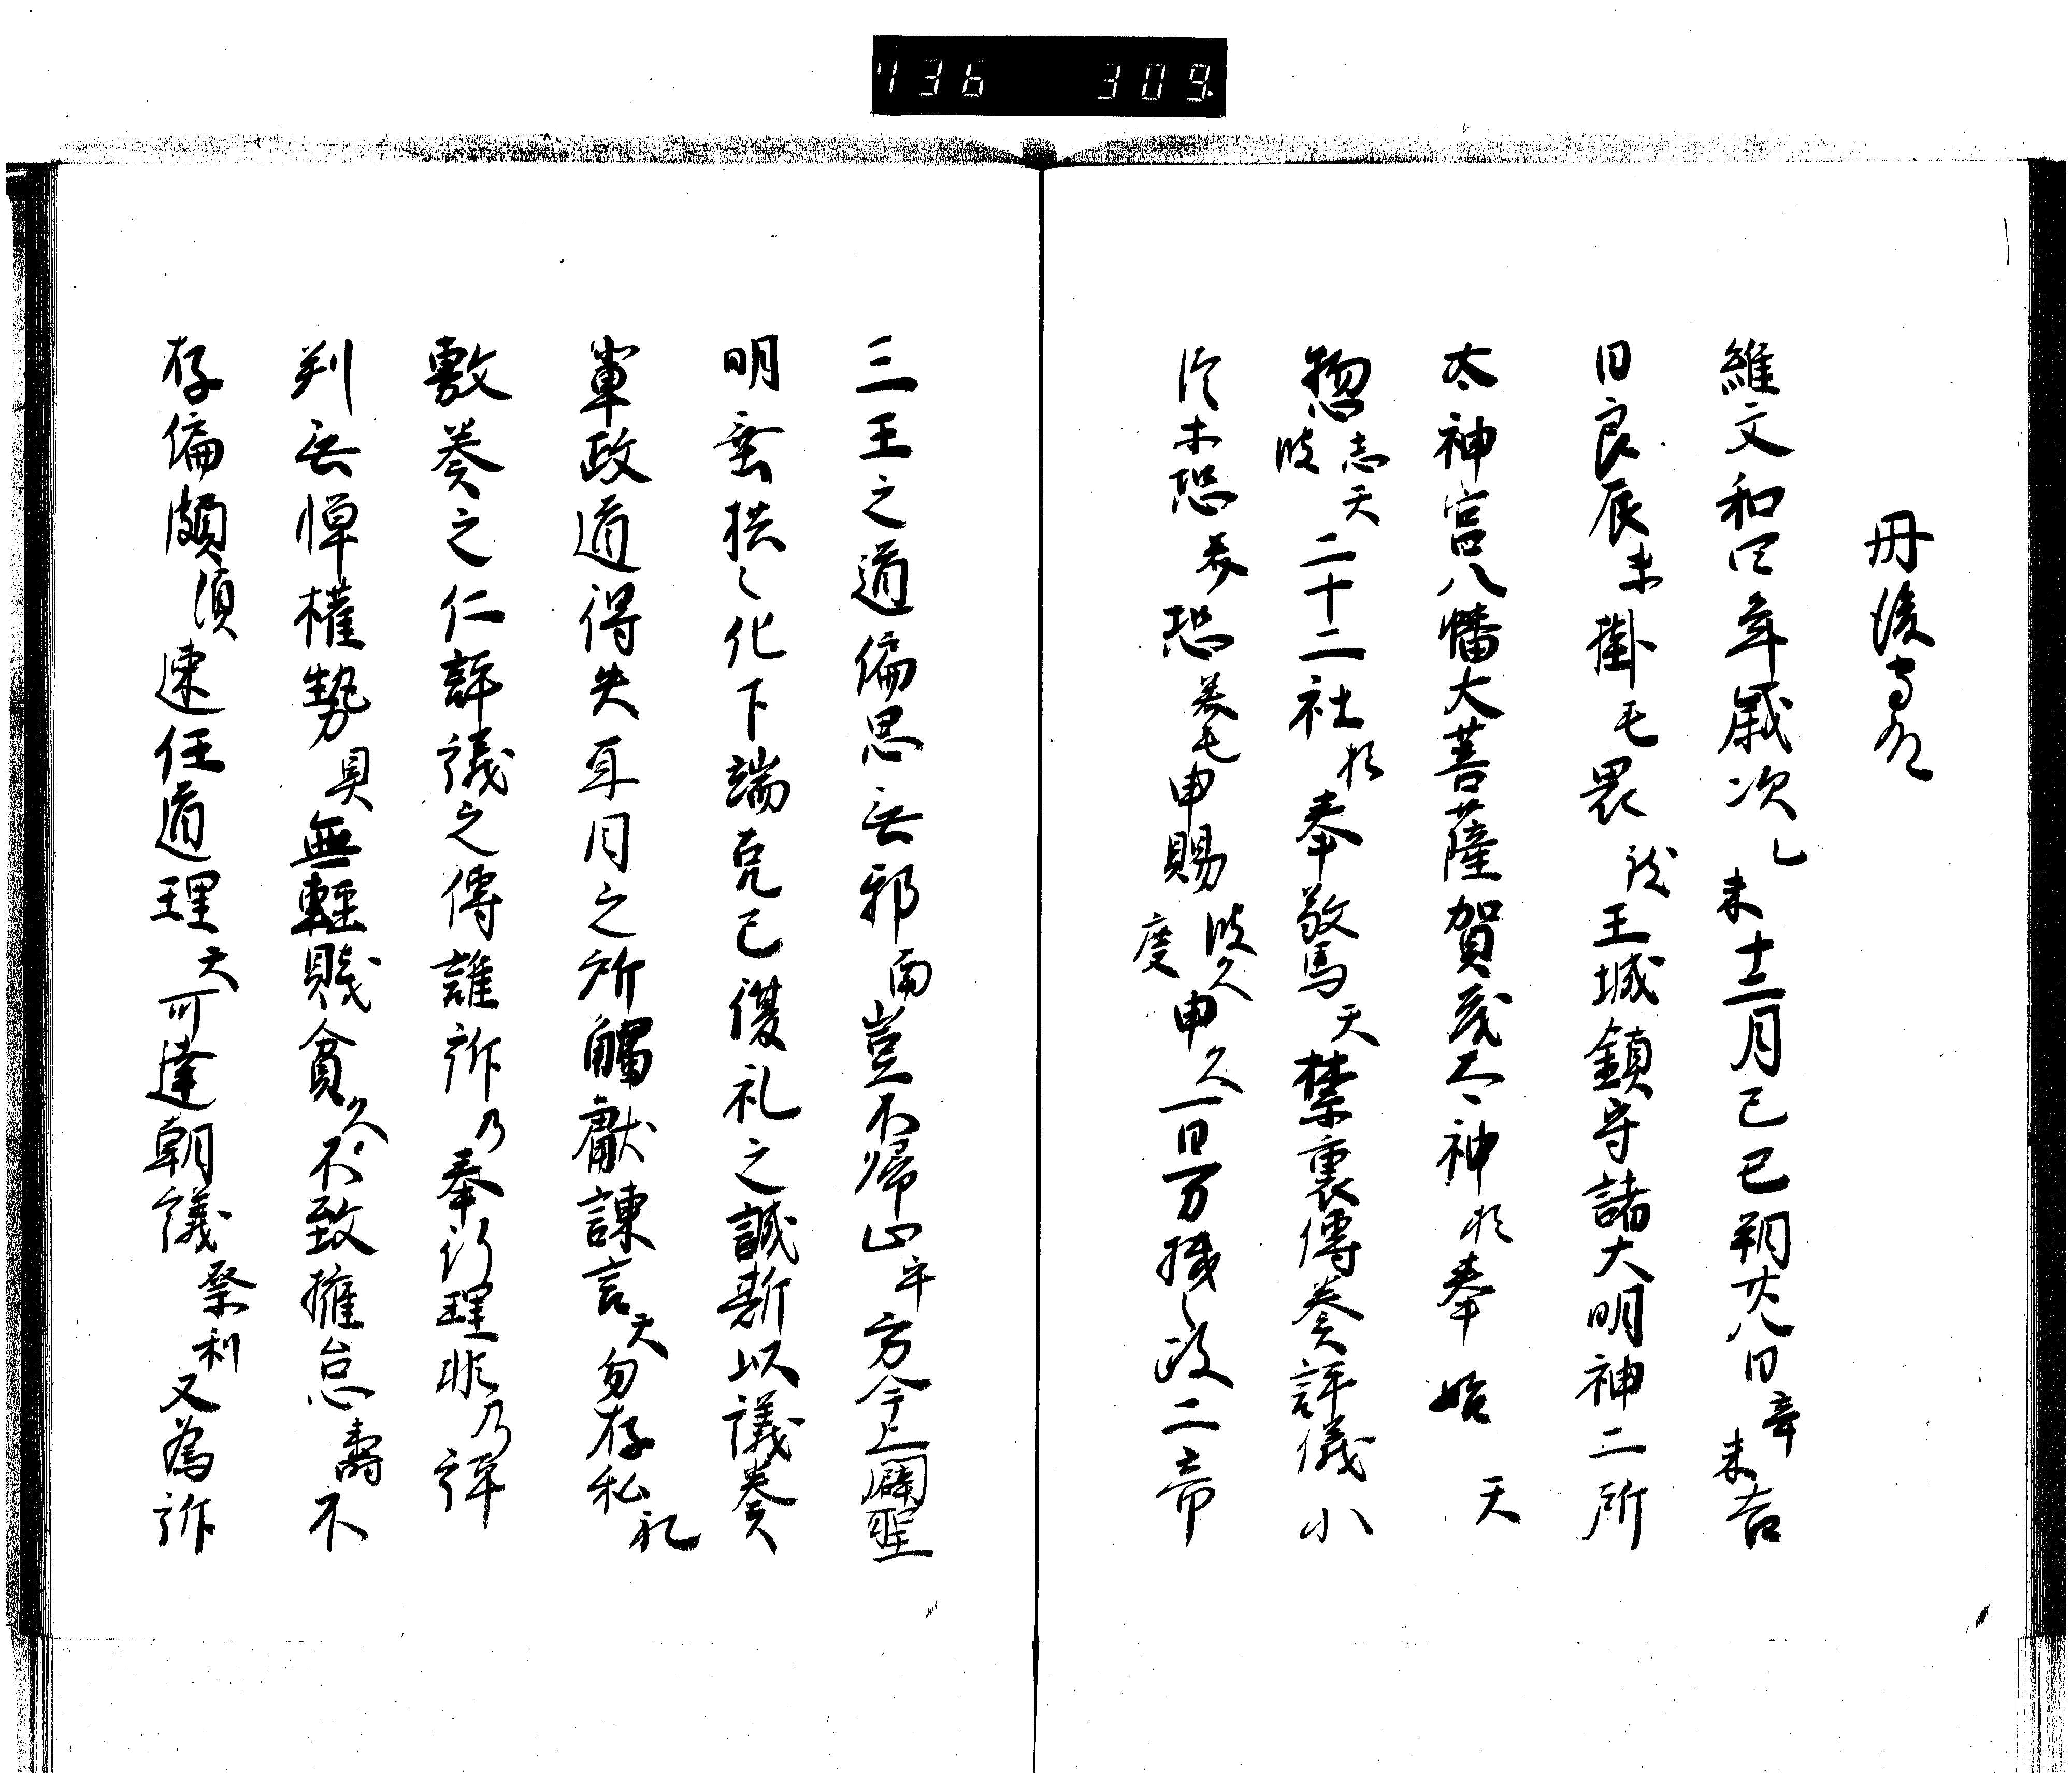 736 309
丹後守
維文和四年歳次乙未十二月己巳朔廿八日辛未吉
日良辰尓掛毛畏王城鎮守諸大明神二所
太神宮八幡大菩薩賀茂太神於奉始天
惣志天波二十二社於奉敬馬天禁裏傳奏評儀小
臣木恐美恐美毛申賜波久度申久一日万機政二帝
三王之道偏思無邪而豈不帰正乎方今上闢聖
明垂拱之化下端克己復礼之誠斯以議奏
軍政道得失耳目之所觸献諌言天勿存私礼
敷奏之仁評議之傳誰訴乃奉行理非乃評
判無憚權勢具無輕賤貪久不致擁怠寿不
存偏頗須速任道理天可達朝議祭利又為訴